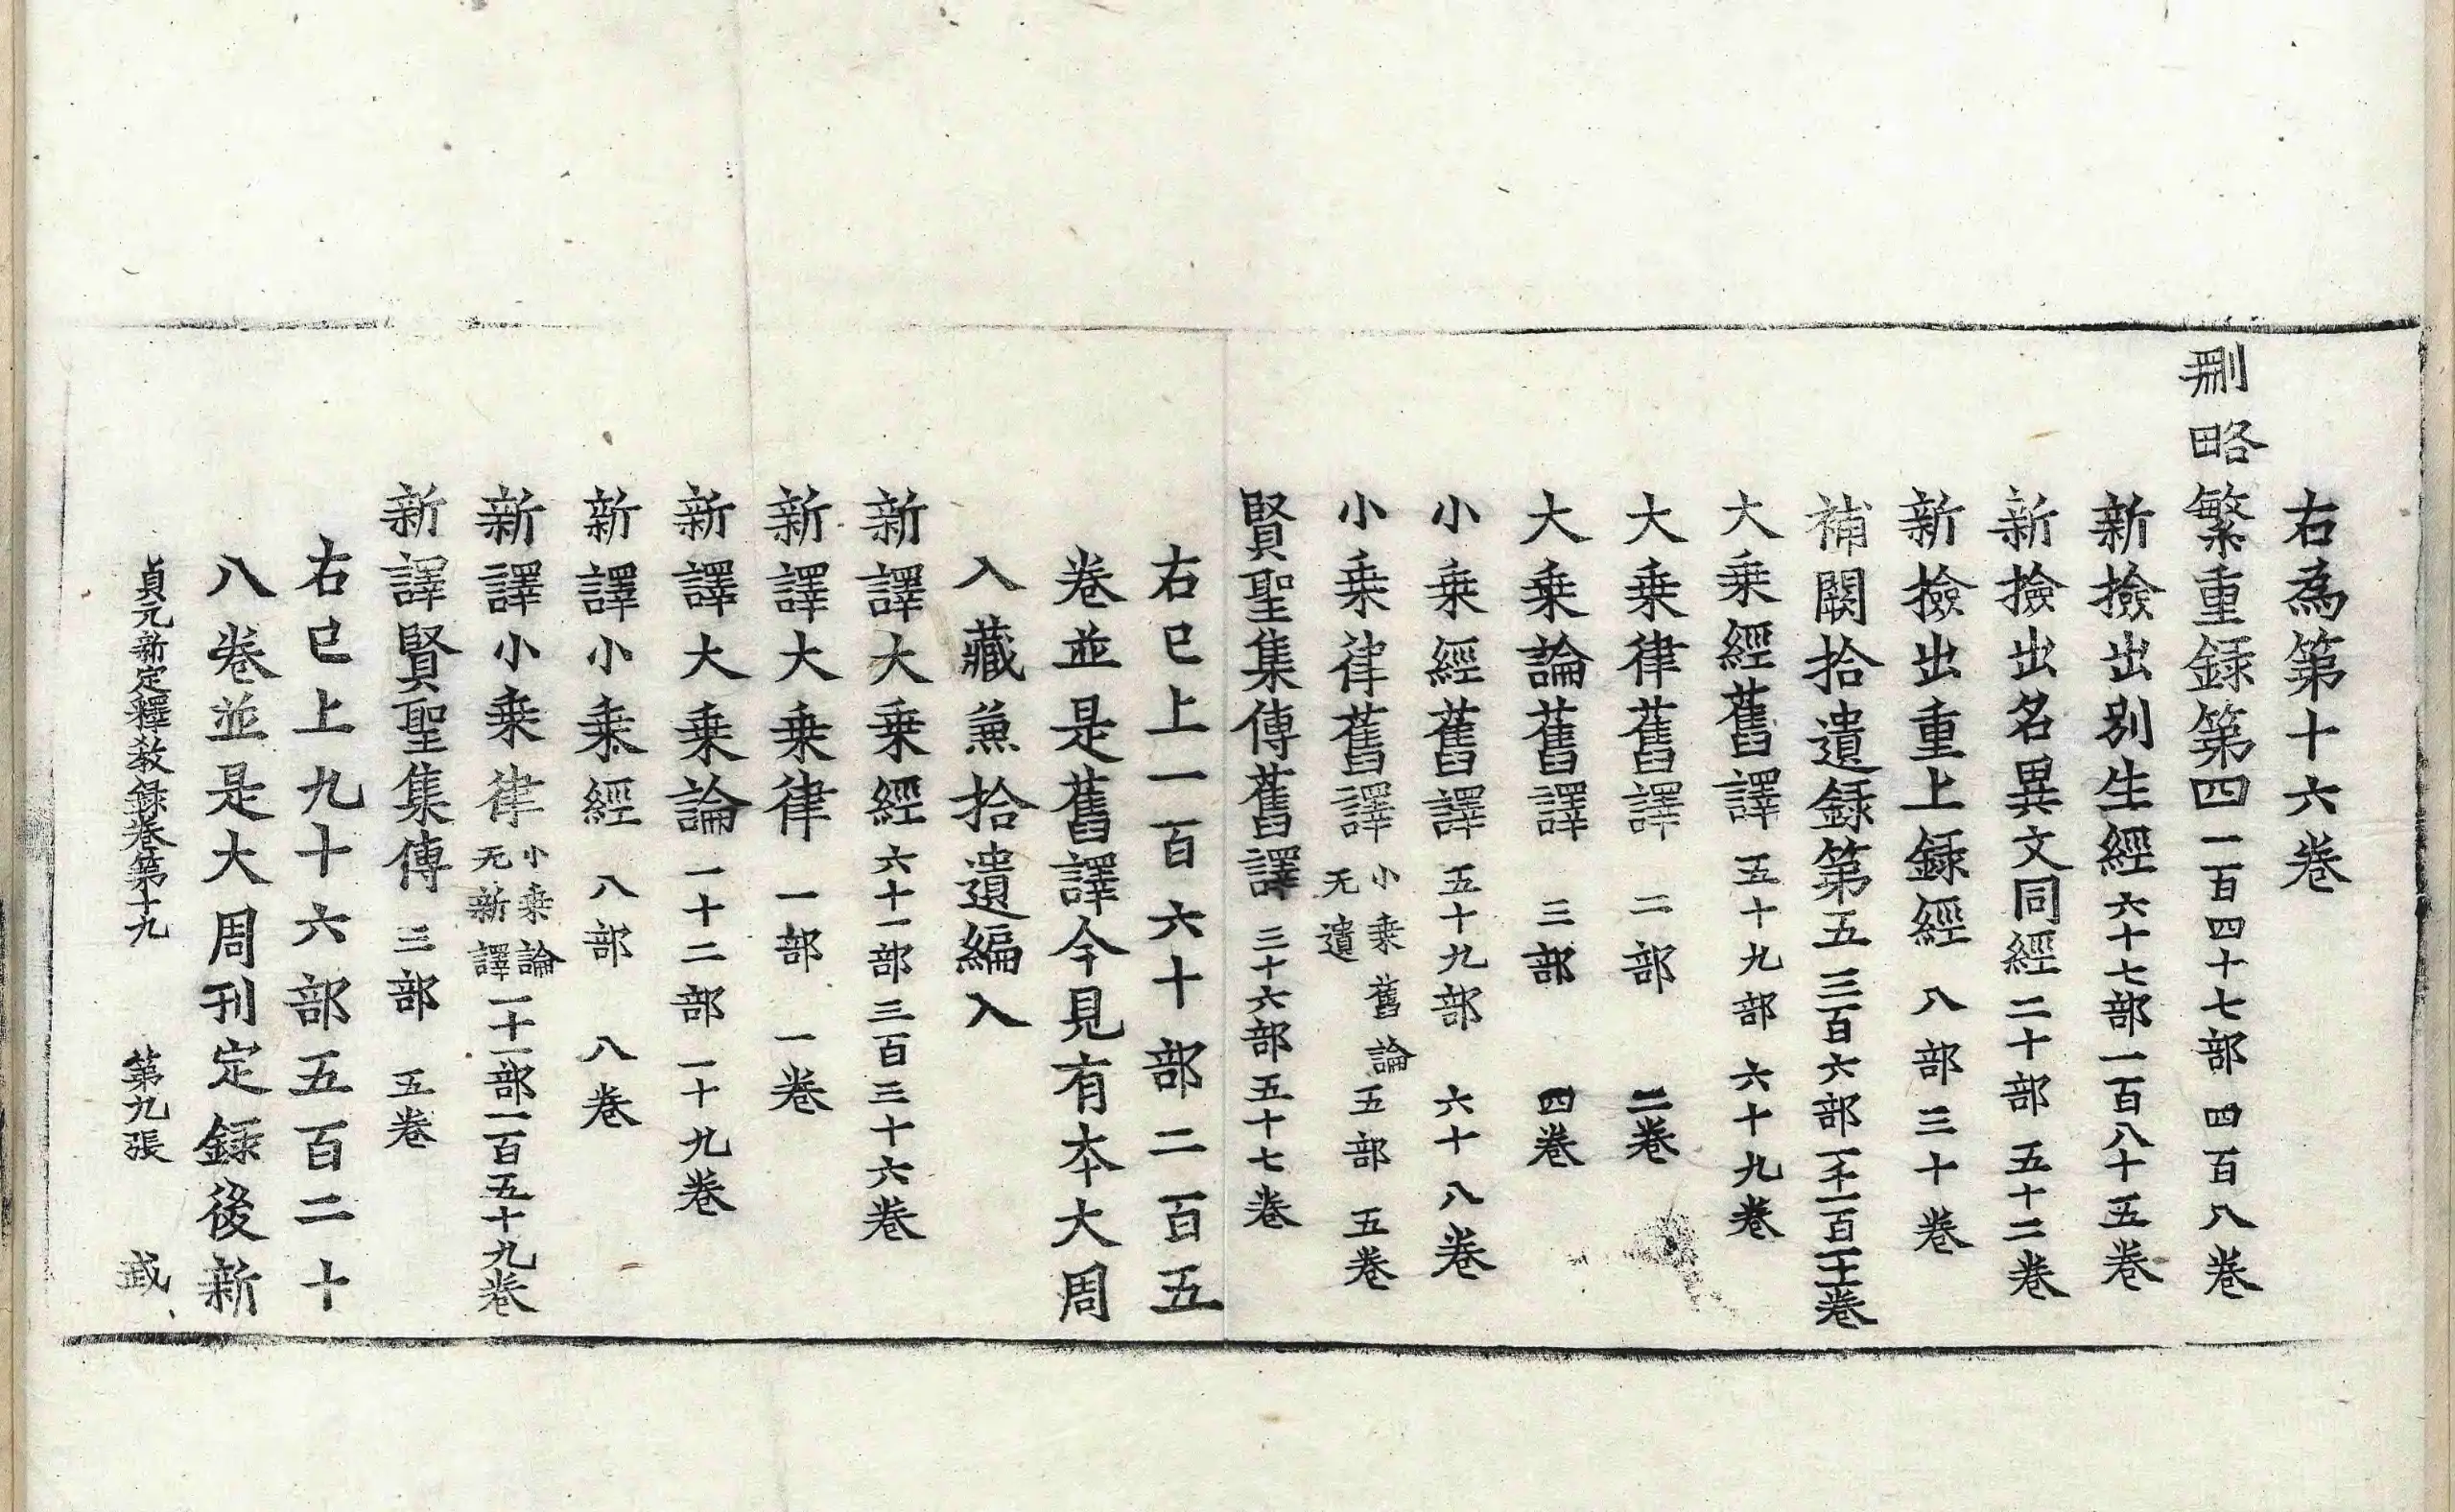 右為第十六卷
刪略繁重録第四 一百四十七部 四百八卷
新撿出別生經 六十七部 一百八十五卷
新撿出名異文同經 二十部 五十二卷
新撿出重上録經 八部 三十卷
補闕拾遺録第五 三百六部 一千一百一十一卷
大乗經舊譯 五十九部 六十九卷
大乗律舊譯 二部 二卷
大乗論舊譯 三部 四卷
小乗經舊譯 五十九部 六十八卷
小乗律舊譯 小乗舊論无遺 五部 五卷
賢聖集傳舊譯 三十六部 五十七卷
右巳上一百六十部二百五
卷並是舊譯今見有本大周
入藏兼拾遺編入
新譯大乗經 六十一部 三百三十六卷
新譯大乗律 一部 一卷
新譯大乗論 一十二部 一十九卷
新譯小乗經 八部 八卷
新譯小乗律 小乗論无新譯 一十一部 一百五十九卷
新譯賢聖集傳 三部 五卷
右巳上九十六部五百二十
八卷並是大周刊定録後新
貞元新定釋教録卷第十九 第九張